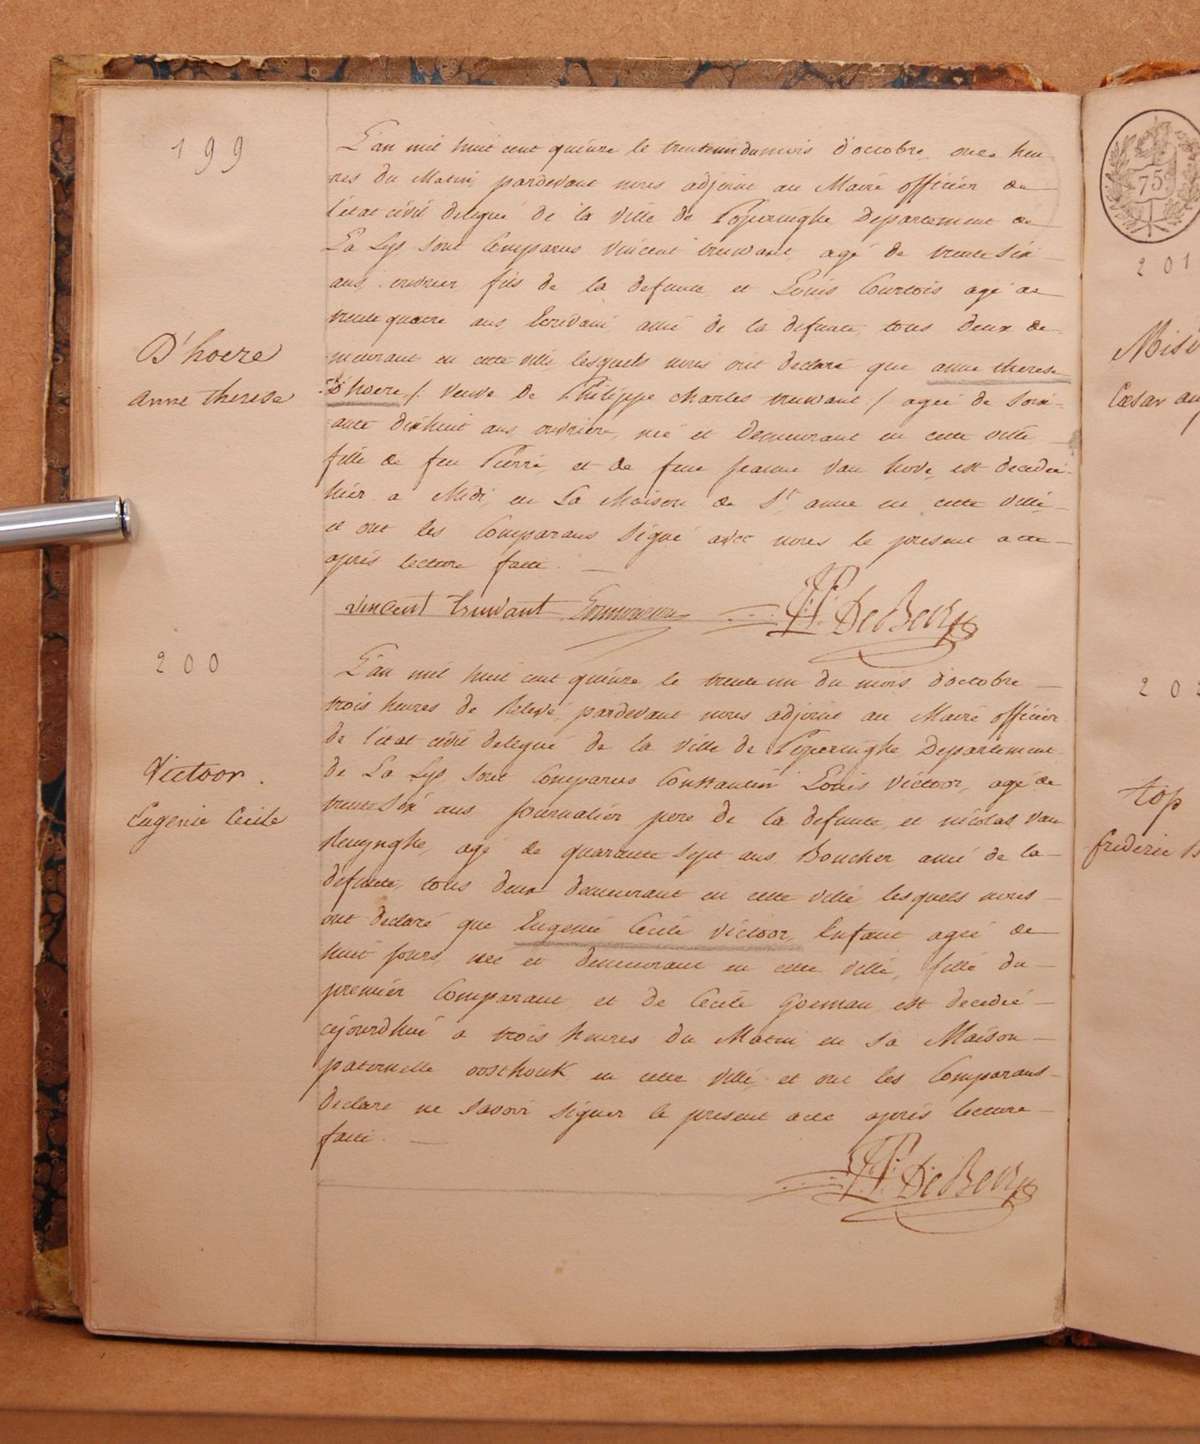 199
L'an mil huit cent quinze le trente un du mois d'octobre onze heu
res du Matin, pardevant nous adjoint au Maire officier de
l'état civil delegué de la ville de Poperinghe Departement de
La Lys sont Comparus Vincent truwant agé de trente six
ans ouvrier fils de la defunte et Louis Courtois agé de
trente quatre ans Ecrivain ami de la defunte, tous deux de
meurant en cette ville lesquels nous ont declaré que anne therese
D'hoere / veuve de Philippe charles truwant / agée de soix
ante dixhuit ans ouvriere, née et demeurant en cette ville
fille de feu Pierre et de feue jeanne van hove, est decedée
hier a Midi, en La Maison de Ste anne en cette ville
et ont les Comparans Signé avec nous le present acte
après lecture faite.
D'hoere
anne therese
vincent truwant DeBevir
200
L'an mil huit cent quinze le trente un du mois d'octobre
trois heures de Relevé, pardevant nous adjoint au Maire officier
de l'état civil delegué de la ville de Poperinghe Departement
de La Lys sont Comparus Constantin Louis Victoor, agé de
trente Six ans journalier pere de la defunte et nicolas van
Renynghe agé de quarante sept ans Boucher ami de la
defunte, tous deux demeurant en cette ville lesquels nous
ont declaré que Eugenie Cecile Victoor, Enfant agée de
huit jours, née et demeurant en cette ville, fille du
premier Comparant et de Cecile goeman, est decedée
cejourdhui a trois heures du Matin en sa Maison
paternelle oosthouk en cette ville et ont les Comparans
Declaré ne Savoir Signer le present acte après lecture
faite.
Victoor.
Eugenie Cecile
DeBevir
75
201
Cæsar
top
frederic